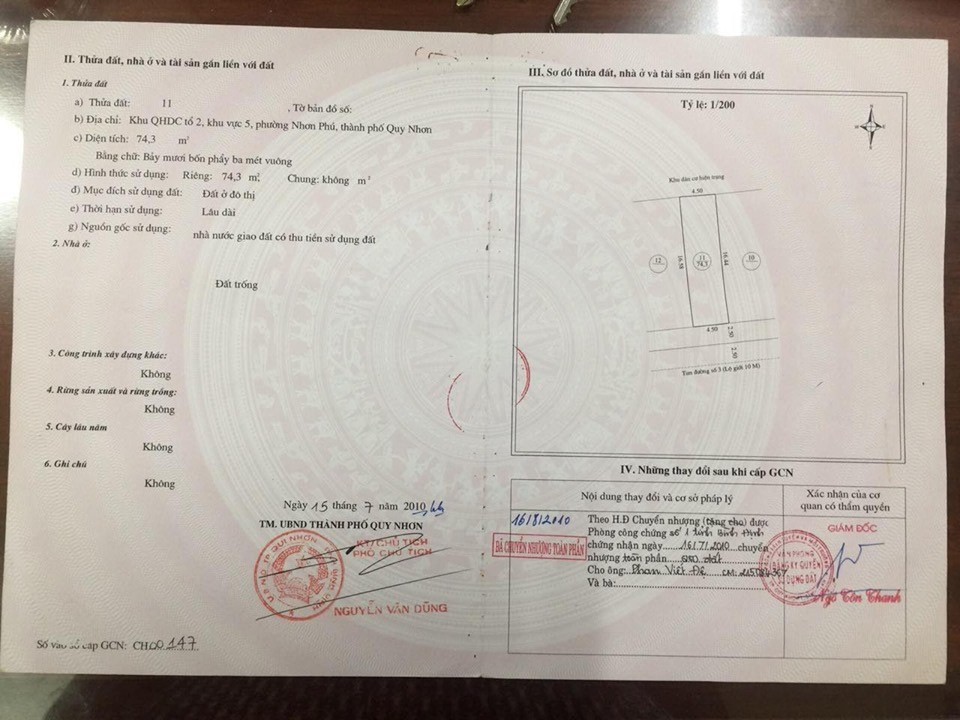 II. Thửa đất, nhà ở và tài sản gắn liền với đất
1. Thửa đất
a) Thửa đất: 11 , Tờ bản đồ số:
b) Địa chỉ: Khu QHDC tổ 2, khu vực 5, phường Nhơn Phú, thành phố Quy Nhơn
c) Diện tích: 74,3 m²
Bằng chữ: Bảy mươi bốn phẩy ba mét vuông
d) Hình thức sử dụng: Riêng: 74,3 m², Chung: không m²
đ) Mục đích sử dụng đất: Đất ở đô thị
e) Thời hạn sử dụng: Lâu dài
g) Nguồn gốc sử dụng: nhà nước giao đất có thu tiền sử dụng đất
2. Nhà ở:
Đất trống
3. Công trình xây dựng khác:
Không
4. Rừng sản xuất và rừng trồng:
Không
5. Cây lâu năm
Không
6. Ghi chú
Không
Ngày 15 tháng 7 năm 2010
TM. UBND THÀNH PHỐ QUY NHƠN
KT/CHỦ TỊCH
PHÓ CHỦ TỊCH
NGUYỄN VĂN DŨNG
Số vào sổ cấp GCN: CH00147
III. Sơ đồ thửa đất, nhà ở và tài sản gắn liền với đất
Tỷ lệ: 1/200
Khu dân cư hiện trạng
4.50
12
16.58
11
74,3
16.44
10
4.50
2.50
2.50
Tim đường số 3 (Lộ giới 10 M)
IV. Những thay đổi sau khi cấp GCN
Nội dung thay đổi và cơ sở pháp lý
Xác nhận của cơ quan có thẩm quyền
16/8/2010
ĐÃ CHUYỂN NHƯỢNG TOÀN PHẦN
Theo H.Đ Chuyển nhượng (tặng cho) được
Phòng công chứng số 1 tỉnh Bình Định
chứng nhận ngày 16/7/2010 chuyển
nhượng toàn phần QSD đất
Cho ông: Phan Viết Đệ CM:
Và bà:
GIÁM ĐỐC
VĂN PHÒNG
ĐĂNG KÝ QUYỀN
SỬ DỤNG ĐẤT
Ngô Tôn Thanh